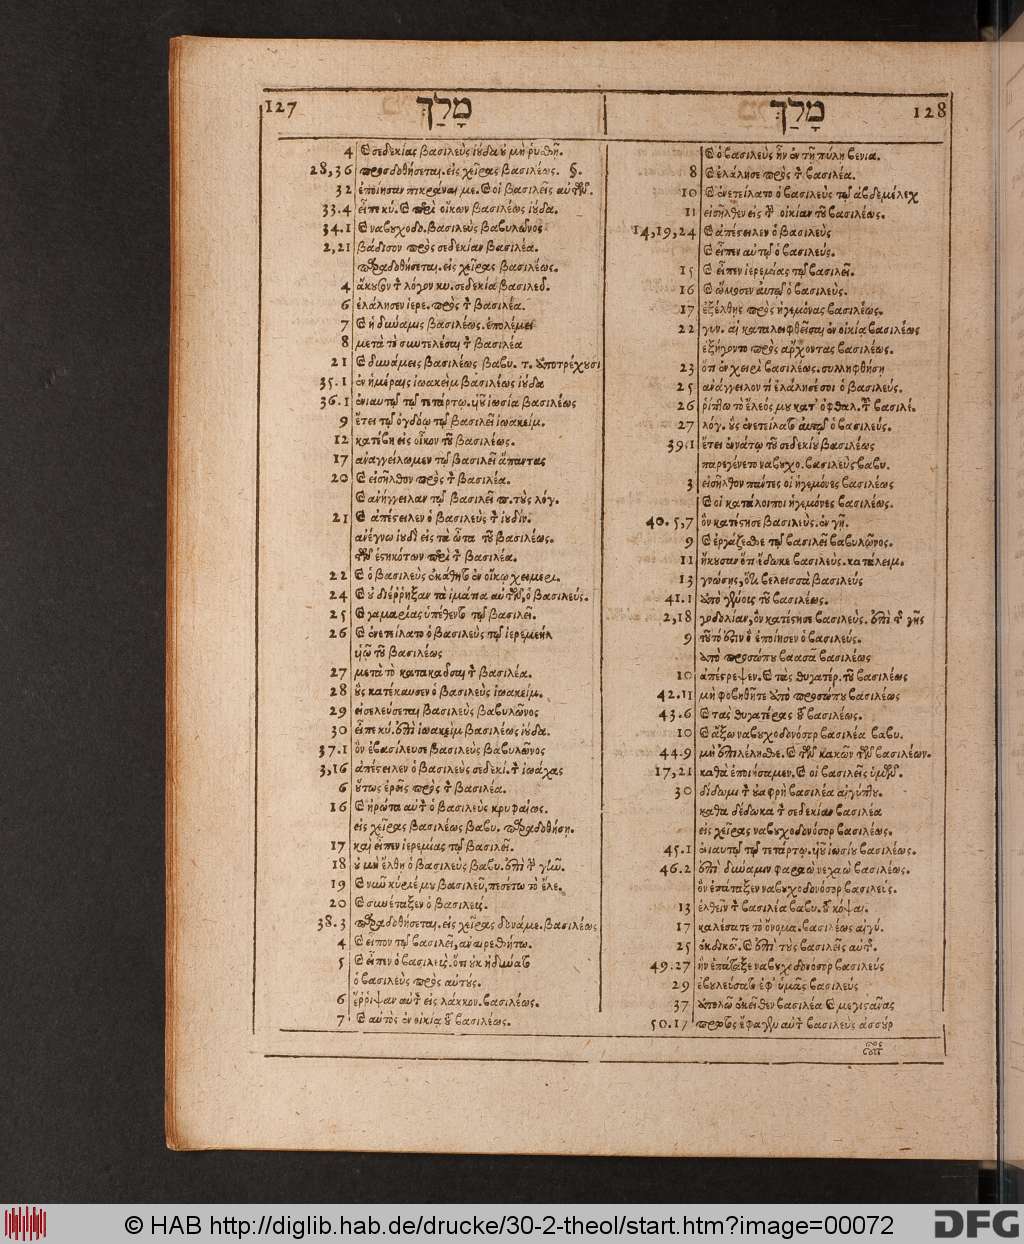 127 מָלַךְ
מָלַךְ 128
4 ϗ σεδεκίας βασιλεὺς ἰούδα οὐ μὴ ῥυσθῇ.
28,36 προσδοθήσεται. εἰς χεῖρας βασιλέως. §.
32 ἐποίησαν πικρᾶναί με. ϗ οἱ βασιλεῖς αὐτῶν.
33.4 εἶπε κύ. ϗ περὶ οἴκων βασιλέως ἰούδα.
34.1 ϗ ναβουχοδο. βασιλεὺς βαβυλῶνος
2,21 βάδισον πρὸς σεδεκίαν βασιλέα.
παραδοθήσεται. εἰς χεῖρας βασιλέως.
4 ἄκουσον τὸν λόγον κυ. σεδεκία βασιλεῦ.
6 ἐλάλησεν ἱερε. πρὸς τὸν βασιλέα.
7 ϗ ἡ δύναμις βασιλέως. ἐπολέμει
8 μετὰ τὸ συντελέσαι τὸν βασιλέα
21 ϗ δυνάμεις βασιλέως βαβυ. τ. ἀποτρέχουσι
35.1 ἐν ἡμέραις ἰωακεὶμ βασιλέως ἰούδα
36.1 ἐνιαυτῷ τῷ τετάρτῳ. υἱοῦ ἰωσία βασιλέως
9 ἔτει τῷ ὀγδόῳ τῷ βασιλεῖ ἰωακείμ.
12 κατέβη εἰς οἶκον τοῦ βασιλέως.
17 ἀναγγείλωμεν τῷ βασιλεῖ ἅπαντας
20 ϗ εἰσῆλθον πρὸς τὸν βασιλέα.
ϗ ἀνήγγειλαν τῷ βασιλεῖ π. τοὺς λόγ.
21 ϗ ἀπέστειλεν ὁ βασιλεὺς τὸν ἰουδίν.
ἀνέγνω ἰουδὶ εἰς τὰ ὦτα τοῦ βασιλέως.
τῶν ἑστηκότων περὶ τὸν βασιλέα.
22 ϗ ὁ βασιλεὺς ἐκάθητο ἐν οἴκῳ χειμερι.
24 ϗ οὐ διέρρηξαν τὰ ἱμάτια αὐτῶν, ὁ βασιλεύς.
25 ϗ γαμαρίας ὑπέθεντο τῷ βασιλεῖ.
26 ϗ ἐνετείλατο ὁ βασιλεὺς τῷ ἱερεμεὴλ
υἱῷ τοῦ βασιλέως
27 μετὰ τὸ κατακαῦσαι τὸν βασιλέα.
28 οὓς κατέκαυσεν ὁ βασιλεὺς ἰωακείμ.
29 εἰσελεύσεται βασιλεὺς βαβυλῶνος
30 εἶπε κύ. ἐπὶ ἰωακεὶμ βασιλέως ἰούδα.
37.1 ὃν ἐβασίλευσε βασιλεὺς βαβυλῶνος
3,16 ἀπέστειλεν ὁ βασιλεὺς σεδεκί. τὸν ἰωάχας
6 οὕτως ἐρεῖς πρὸς τὸν βασιλέα.
16 ϗ ἠρώτα αὐτὸν ὁ βασιλεὺς κρυφαίως.
εἰς χεῖρας βασιλέως βαβυ. παραδοθήσῃ.
17 καὶ εἶπεν ἱερεμίας τῷ βασιλεῖ.
18 οὐ μὴ ἔλθῃ ὁ βασιλεὺς βαβυ. ἐπὶ τὴν γῆν.
19 ϗ νῦν κύριέ μου βασιλεῦ, πεσέτω τὸ ἔλε.
20 ϗ συνέταξεν ὁ βασιλεύς.
38.3 παραδοθήσεται. εἰς χεῖρας δυνάμε. βασιλέως
4 ϗ εἶπον τῷ βασιλεῖ, ἀναιρεθήτω.
5 ϗ εἶπεν ὁ βασιλεύς. ὅτι οὐκ ἠδύνατο
ὁ βασιλεὺς πρὸς αὐτούς.
6 ἔρριψαν αὐτὸν εἰς λάκκον. βασιλέως.
7 ϗ αὐτὸς ἐν οἰκίᾳ τοῦ βασιλέως.
ϗ ὁ βασιλεὺς ἦν ἐν τῇ πύλῃ βενια.
8 ϗ ἐλάλησε πρὸς τὸν βασιλέα.
10 ϗ ἐνετείλατο ὁ βασιλεὺς τῷ ἀβδεμέλεχ
11 εἰσῆλθεν εἰς τὴν οἰκίαν τοῦ βασιλέως.
14,19,24 ϗ ἀπέστειλεν ὁ βασιλεὺς
ϗ εἶπεν αὐτῷ ὁ βασιλεύς.
15 ϗ εἶπεν ἱερεμίας τῷ βασιλεῖ.
16 ϗ ὤμοσεν αὐτῷ ὁ βασιλεὺς.
17 ἐξέλθῃς πρὸς ἡγεμόνας βασιλέως.
22 γυν. αἱ καταλειφθεῖσαι ἐν οἰκίᾳ βασιλέως
ἐξήγοντο πρὸς ἄρχοντας βασιλέως.
23 ὅτι ἐν χειρὶ βασιλέως. συλληφθήσῃ
25 ἀνάγγειλον τί ἐλάλησέ σοι ὁ βασιλεύς.
26 ῥίπτω τὸ ἔλεός μου κατ' ὀφθαλ. τοῦ βασιλέ.
27 λόγ. οὓς ἐνετείλατο αὐτῷ ὁ βασιλεύς.
39.1 ἔτει ἐννάτῳ τοῦ σεδεκίου βασιλέως
παρεγένετο ναβουχο. βασιλεὺς βαβυ.
3 εἰσῆλθον πάντες οἱ ἡγεμόνες βασιλέως
ϗ οἱ κατάλοιποι ἡγεμόνες βασιλέως.
40.5,7 ὃν κατέστησε βασιλεύς. ἐν γῇ.
9 ϗ ἐργάζεσθε τῷ βασιλεῖ βαβυλῶνος.
11 ἤκουσαν ὅτι ἔδωκε βασιλεὺς. κατάλειμ.
13 γνώσῃς, ὅτι βελεισσὰ βασιλεὺς
41.1 ἀπὸ γένους τοῦ βασιλέως.
2,18 γοδολίαν, ὃν κατέστησε βασιλεὺς. ἐπὶ τῆς γῆς
9 τοῦτό ἐστιν ὃ ἐποίησεν ὁ βασιλεύς.
ἀπὸ προσώπου βαασὰ βασιλέως
10 ἀπέστρεψεν. ϗ τὰς θυγατέρ. τοῦ βασιλέως
42.11 μὴ φοβηθῆτε ἀπὸ προσώπου βασιλέως
43.6 ϗ τὰς θυγατέρας τοῦ βασιλέως.
10 ϗ ἄξω ναβουχοδονόσορ βασιλέα βαβυ.
44.9 μὴ ἐπιλέλησθε. ϗ τῶν κακῶν τῶν βασιλέων.
17,21 καθὰ ἐποιήσαμεν. ϗ οἱ βασιλεῖς ὑμῶν.
30 δίδωμι τὸν οὐαφρῆ βασιλέα αἰγύπτου.
καθὰ δέδωκα τὸν σεδεκίαν βασιλέα
εἰς χεῖρας ναβουχοδονόσορ βασιλέως.
45.1 ἐνιαυτῷ τῷ τετάρτῳ. υἱοῦ ἰωσίου βασιλέως.
46.2 ἐπὶ δύναμιν φαραὼ νεχαὼ βασιλέως.
ὃν ἐπάταξεν ναβουχοδονόσορ βασιλεὺς.
13 ἐλθεῖν τὸν βασιλέα βαβυ. τοῦ κόψαι.
17 καλέσατε τὸ ὄνομα. βασιλέως αἰγύ.
25 ἐκδικῶ. ϗ ἐπὶ τοὺς βασιλεῖς αὐτῆς.
49.27 ἣν ἐπάταξε ναβουχοδονόσορ βασιλεὺς
29 ἐβουλεύσατο ἐφ' ὑμᾶς βασιλεὺς
37 ἀπολῶ ἐκεῖθεν βασιλέα ϗ μεγιστᾶνας
50.17 πρῶτος ἔφαγεν αὐτὸν βασιλεὺς ἀσσούρ
© HAB http://diglib.hab.de/drucke/30-2-theol/start.htm?image=00072
DFG